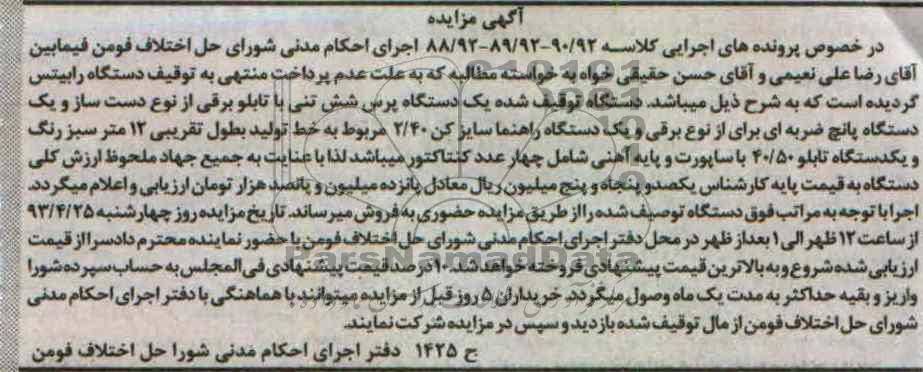 آگهی مزایده
در خصوص پرونده های اجرایی کلاسه ۹۰/۹۲-۸۹/۹۲-۸۸/۹۲ اجرای احکام مدنی شورای حل اختلاف فومن فیمابین
آقای رضا علی نعیمی و آقای حسن حقیقی خواه به خواسته مطالبه که به علت عدم پرداخت منتهی به توقیف دستگاه رابیتس
گردیده است که به شرح ذیل میباشد. دستگاه توقیف شده یک دستگاه پرس شش تنی با تابلو برقی از نوع دست ساز و یک
دستگاه پانچ ضربه ای برای از نوع برقی و یک دستگاه راهنما سایز کن ۲/۴۰ مربوط به خط تولید بطول تقریبی ۱۲ متر سبز رنگ
و یکدستگاه تابلو ۴۰/۵۰ با ساپورت و پایه آهنی شامل چهار عدد کنتاکتور میباشد لذا با عنایت به جمیع جهاد ملحوظ ارزش کلی
دستگاه به قیمت پایه کارشناس یکصدو پنجاه و پنج میلیون ریال معادل پانزده میلیون و پانصد هزار تومان ارزیابی و اعلام میگردد.
اجرا با توجه به مراتب فوق دستگاه توصیف شده را از طریق مزایده حضوری به فروش میرساند. تاریخ مزایده روز چهارشنبه ۹۳/۴/۲۵
از ساعت ۱۲ ظهر الی ۱ بعداز ظهر در محل دفتر اجرای احکام مدنی شورای حل اختلاف فومن با حضور نماینده محترم دادسرا از قیمت
ارزیابی شده شروع و به بالاترین قیمت پیشنهادی فروخته خواهد شد. ۱۰درصد قیمت پیشنهادی فی المجلس به حساب سپرده شورا
واریز و بقیه حداکثر به مدت یک ماه وصول میگردد. خریداران ۵ روز قبل از مزایده میتوانند با هماهنگی با دفتر اجرای احکام مدنی
شورای حل اختلاف فومن از مال توقیف شده بازدید و سپس در مزایده شرکت نمایند.
ح ۱۴۲۵ دفتر اجرای احکام مدنی شورا حل اختلاف فومن
ParsNamadData